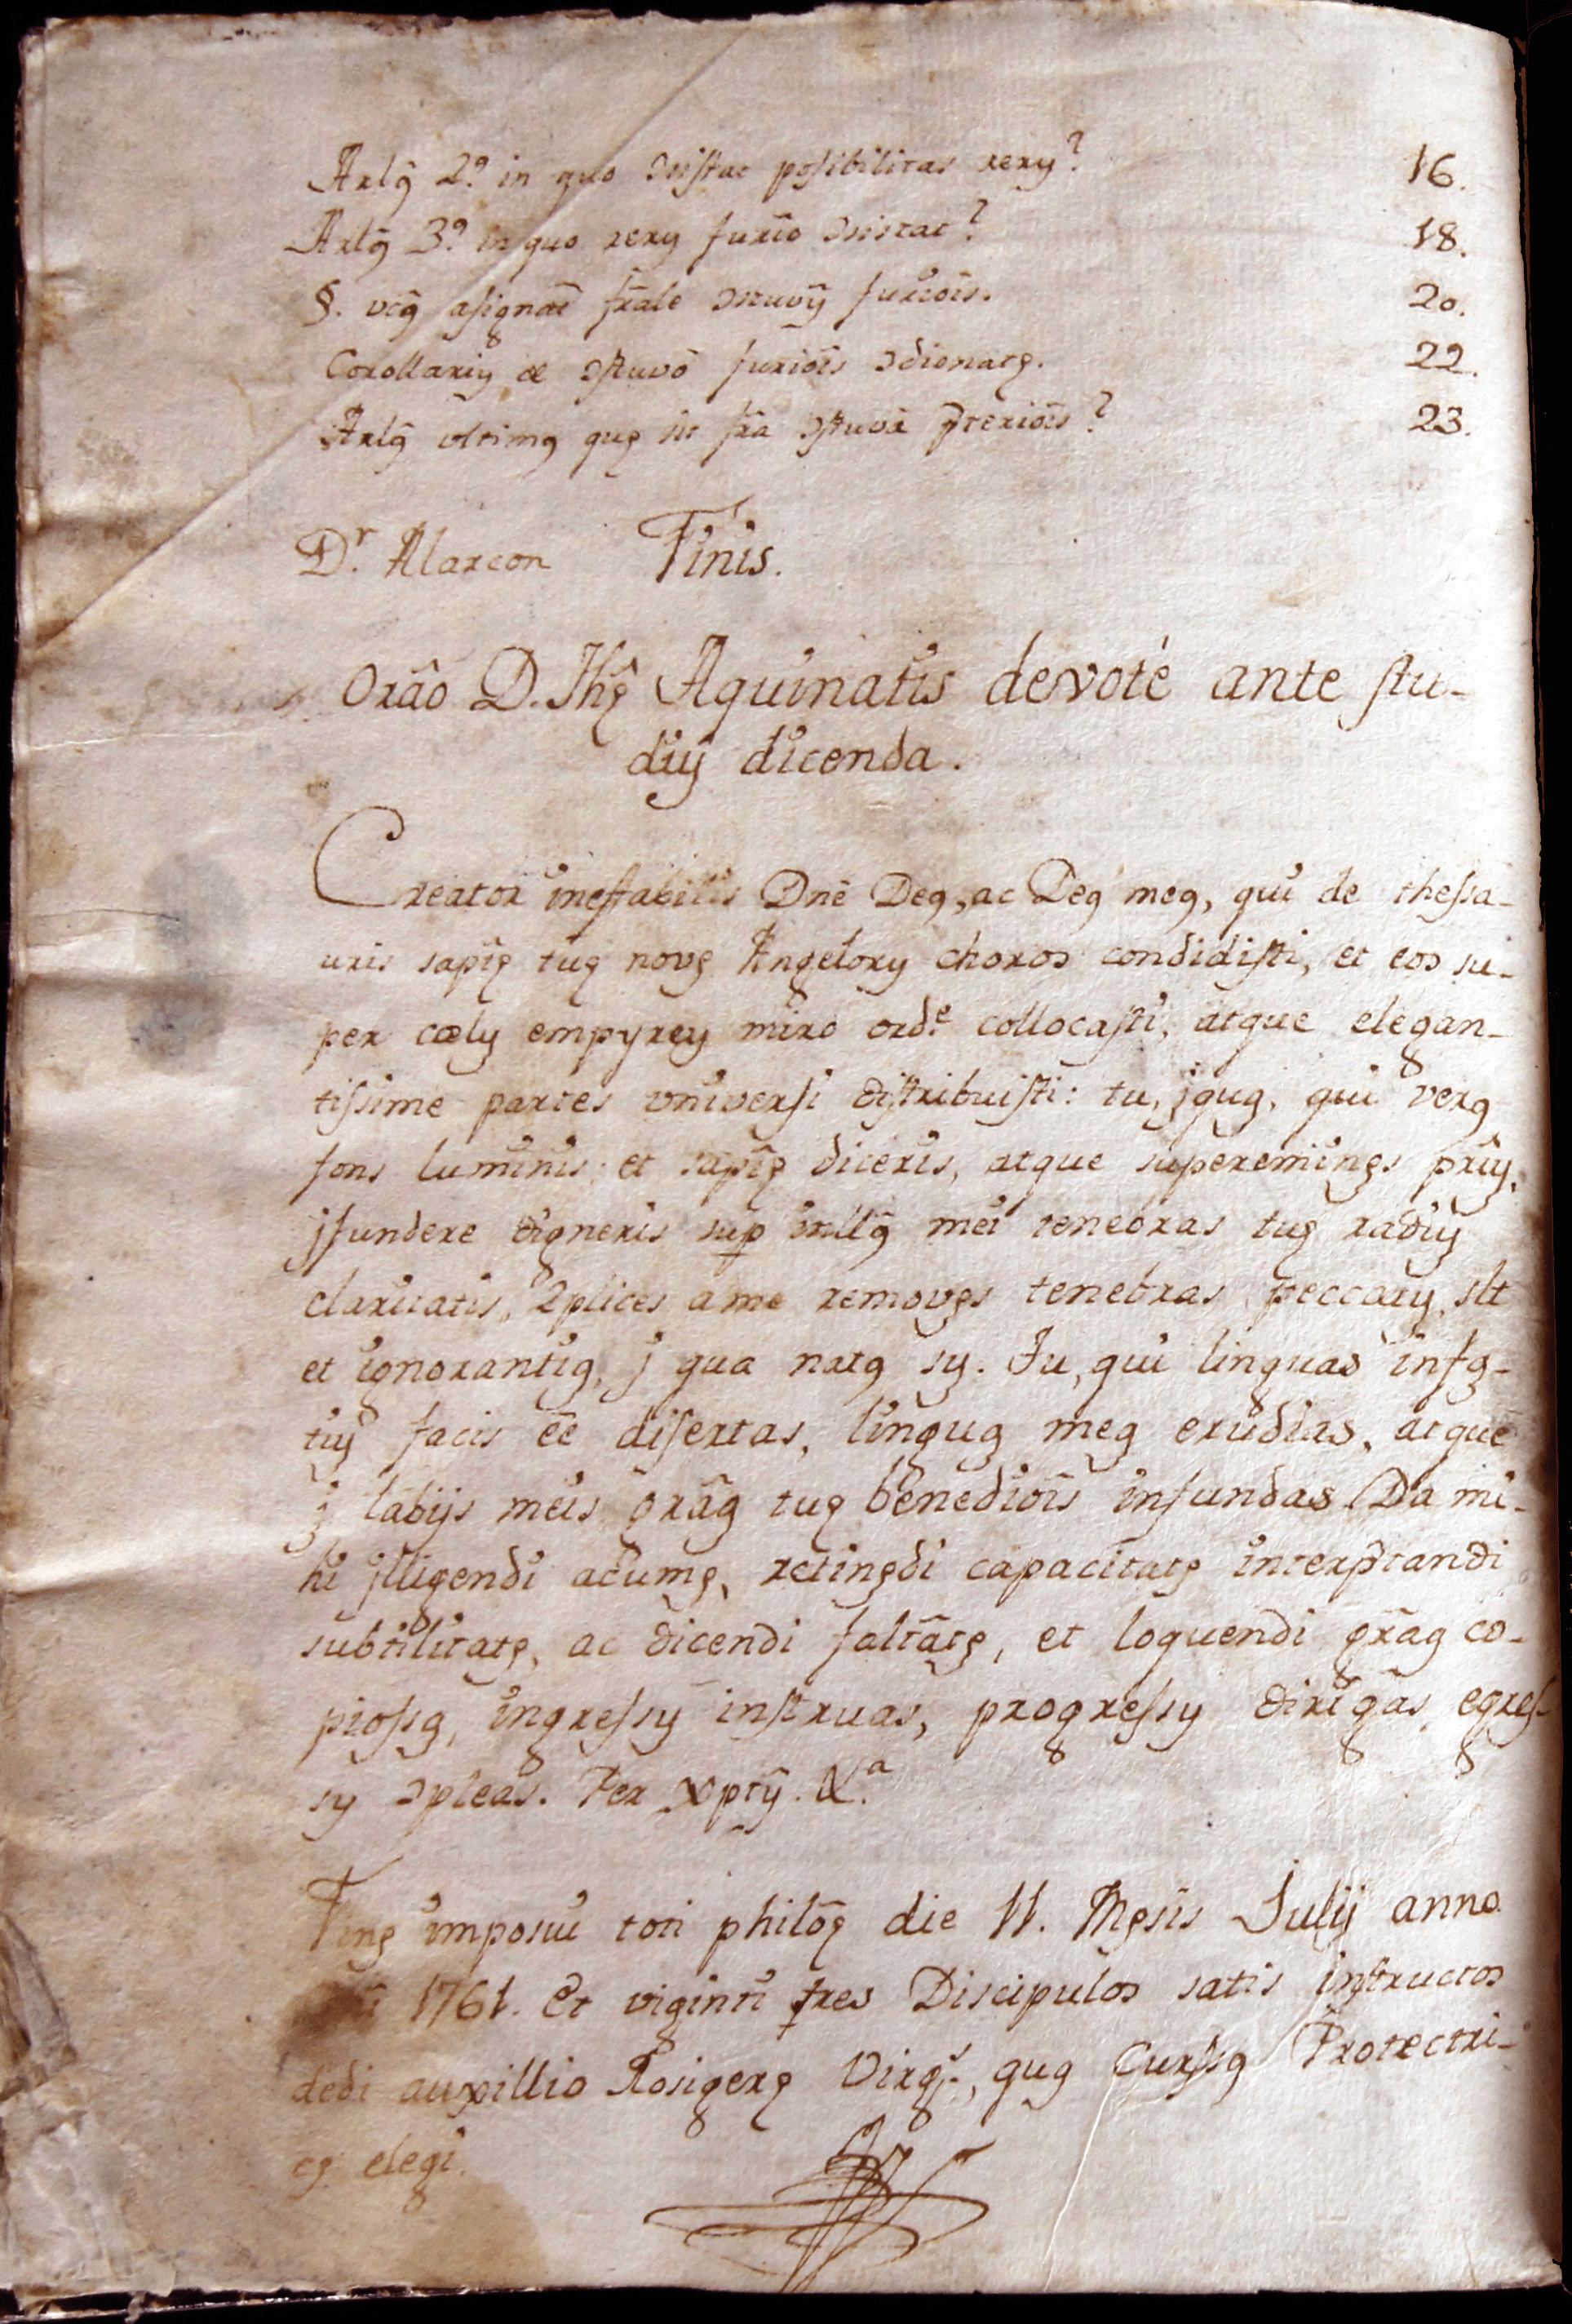 Arlꝯ̃ 2.º in quo ↄsistat posibilitas rerꝯ? 16.
Arlꝯ̃ 3.º in quo rerꝯ furio ↄsistat? 18.
§. vcꝯ̃ asignat̃ fr̃ale ↄstuvꝯ̃ furiōis. 20.
Corollariꝯ de ↄstuvō furiōis ↄdionatę. 22.
Arlꝯ̃ vltimꝯ quę sit fr̃a ↄstuva p̃teriōis? 23.
D.r Alarcon Finis.
Orão D. Thę̃ Aquinatis devoté ante stu-
diꝯ dicenda.
Creator ineffabilis Dnē Deꝯ, ac Deꝯ meꝯ, qui de thessa-
uris sapię̃ tuę novę Angelorꝯ choros condidisti, et eos su-
per cœlꝯ empyreꝯ miro ord.e collocasti, atque elegan-
tissime partes vniversi distribuisti: tu, jquꝯ, qui verꝯ
fons luminis et sapię̃ diceris, atque supereminęs prīꝯ,
jfundere digneris sup intllꝯ̃ mei tenebras tuꝯ radiꝯ
claritatis, 2plices a me removęs tenebras peccatꝯ, slt
et ignorantiꝯ, j qua natꝯ sꝯ. Tu, qui linguas infꝯ-
tiꝯ facis ēe disertas, linguꝯ meꝯ erudias, atque
j labijs meis grāꝯ tuę benediōis infundas. Da mi-
hi jlligendi acumę, retinędi capacitatę interp̃tandi
subtilitatę, ac dicendi faltātę, et loquendi grāꝯ co-
piossꝯ, ingressꝯ instruas, progressꝯ dirigas, egres-
sꝯ ↄpleas. Per Xptꝯ̃. &.a
Finę imposui toti philōę die 11. Męsis Julij anno
1761. Et viginti tres Discipulos satis instructos
dedi auxillio Rosigerę Virgs., quꝯ Curssꝯ Protectri-
cę elegi.